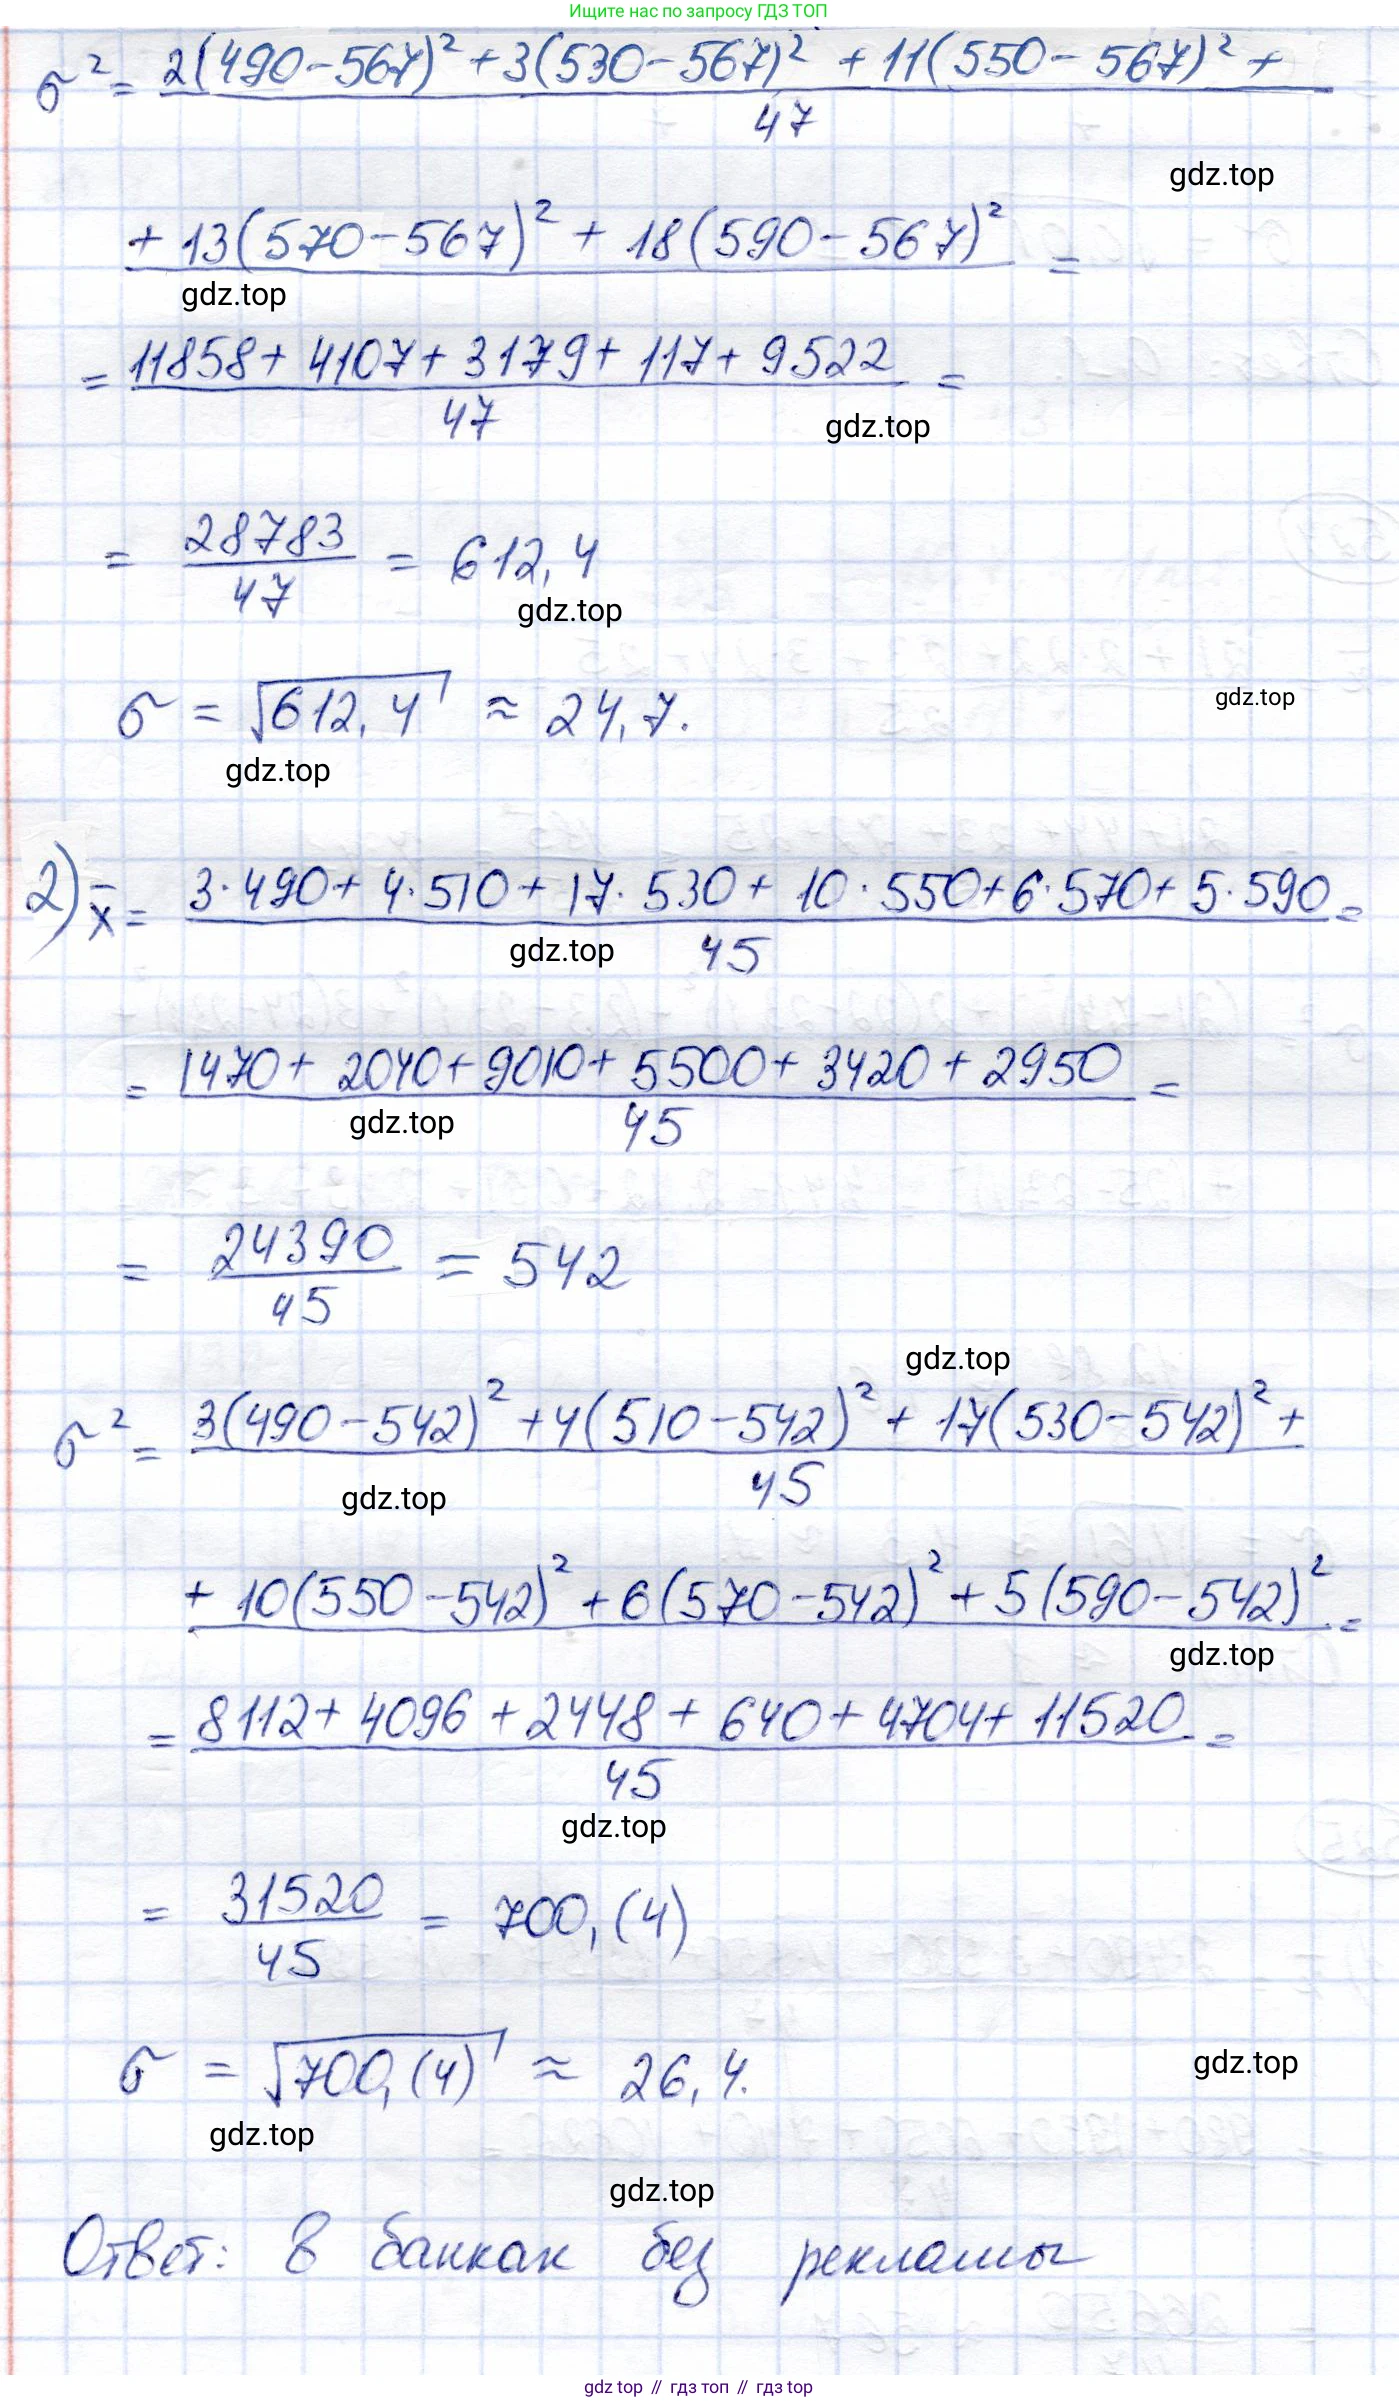 Ищите нас по запросу ГДЗ ТОП
σ² = 2(490-567)² + 3(530-567)² + 11(550-567)² +
47
gdz.top
+ 13(570-567)² + 18(590-567)² =
gdz.top
= 11858 + 4107 + 3179 + 117 + 9522 =
47
gdz.top
= 28783/47 = 612,4
gdz.top
σ = √612,4 ≈ 24,7.
gdz.top
gdz.top
2) x̄ = 3·490 + 4·510 + 17·530 + 10·550 + 6·570 + 5·590 =
45
gdz.top
= 1470 + 2040 + 9010 + 5500 + 3420 + 2950 =
45
gdz.top
= 24390/45 = 542
gdz.top
σ² = 3(490-542)² + 4(510-542)² + 17(530-542)² +
45
gdz.top
+ 10(550-542)² + 6(570-542)² + 5(590-542)² =
gdz.top
= 8112 + 4096 + 2448 + 640 + 4704 + 11520 =
45
gdz.top
= 31520/45 = 700,(4)
σ = √700,(4) ≈ 26,4.
gdz.top
gdz.top
gdz.top
Ответ: в банках без рекламы
gdz top // гдз топ // гдз top